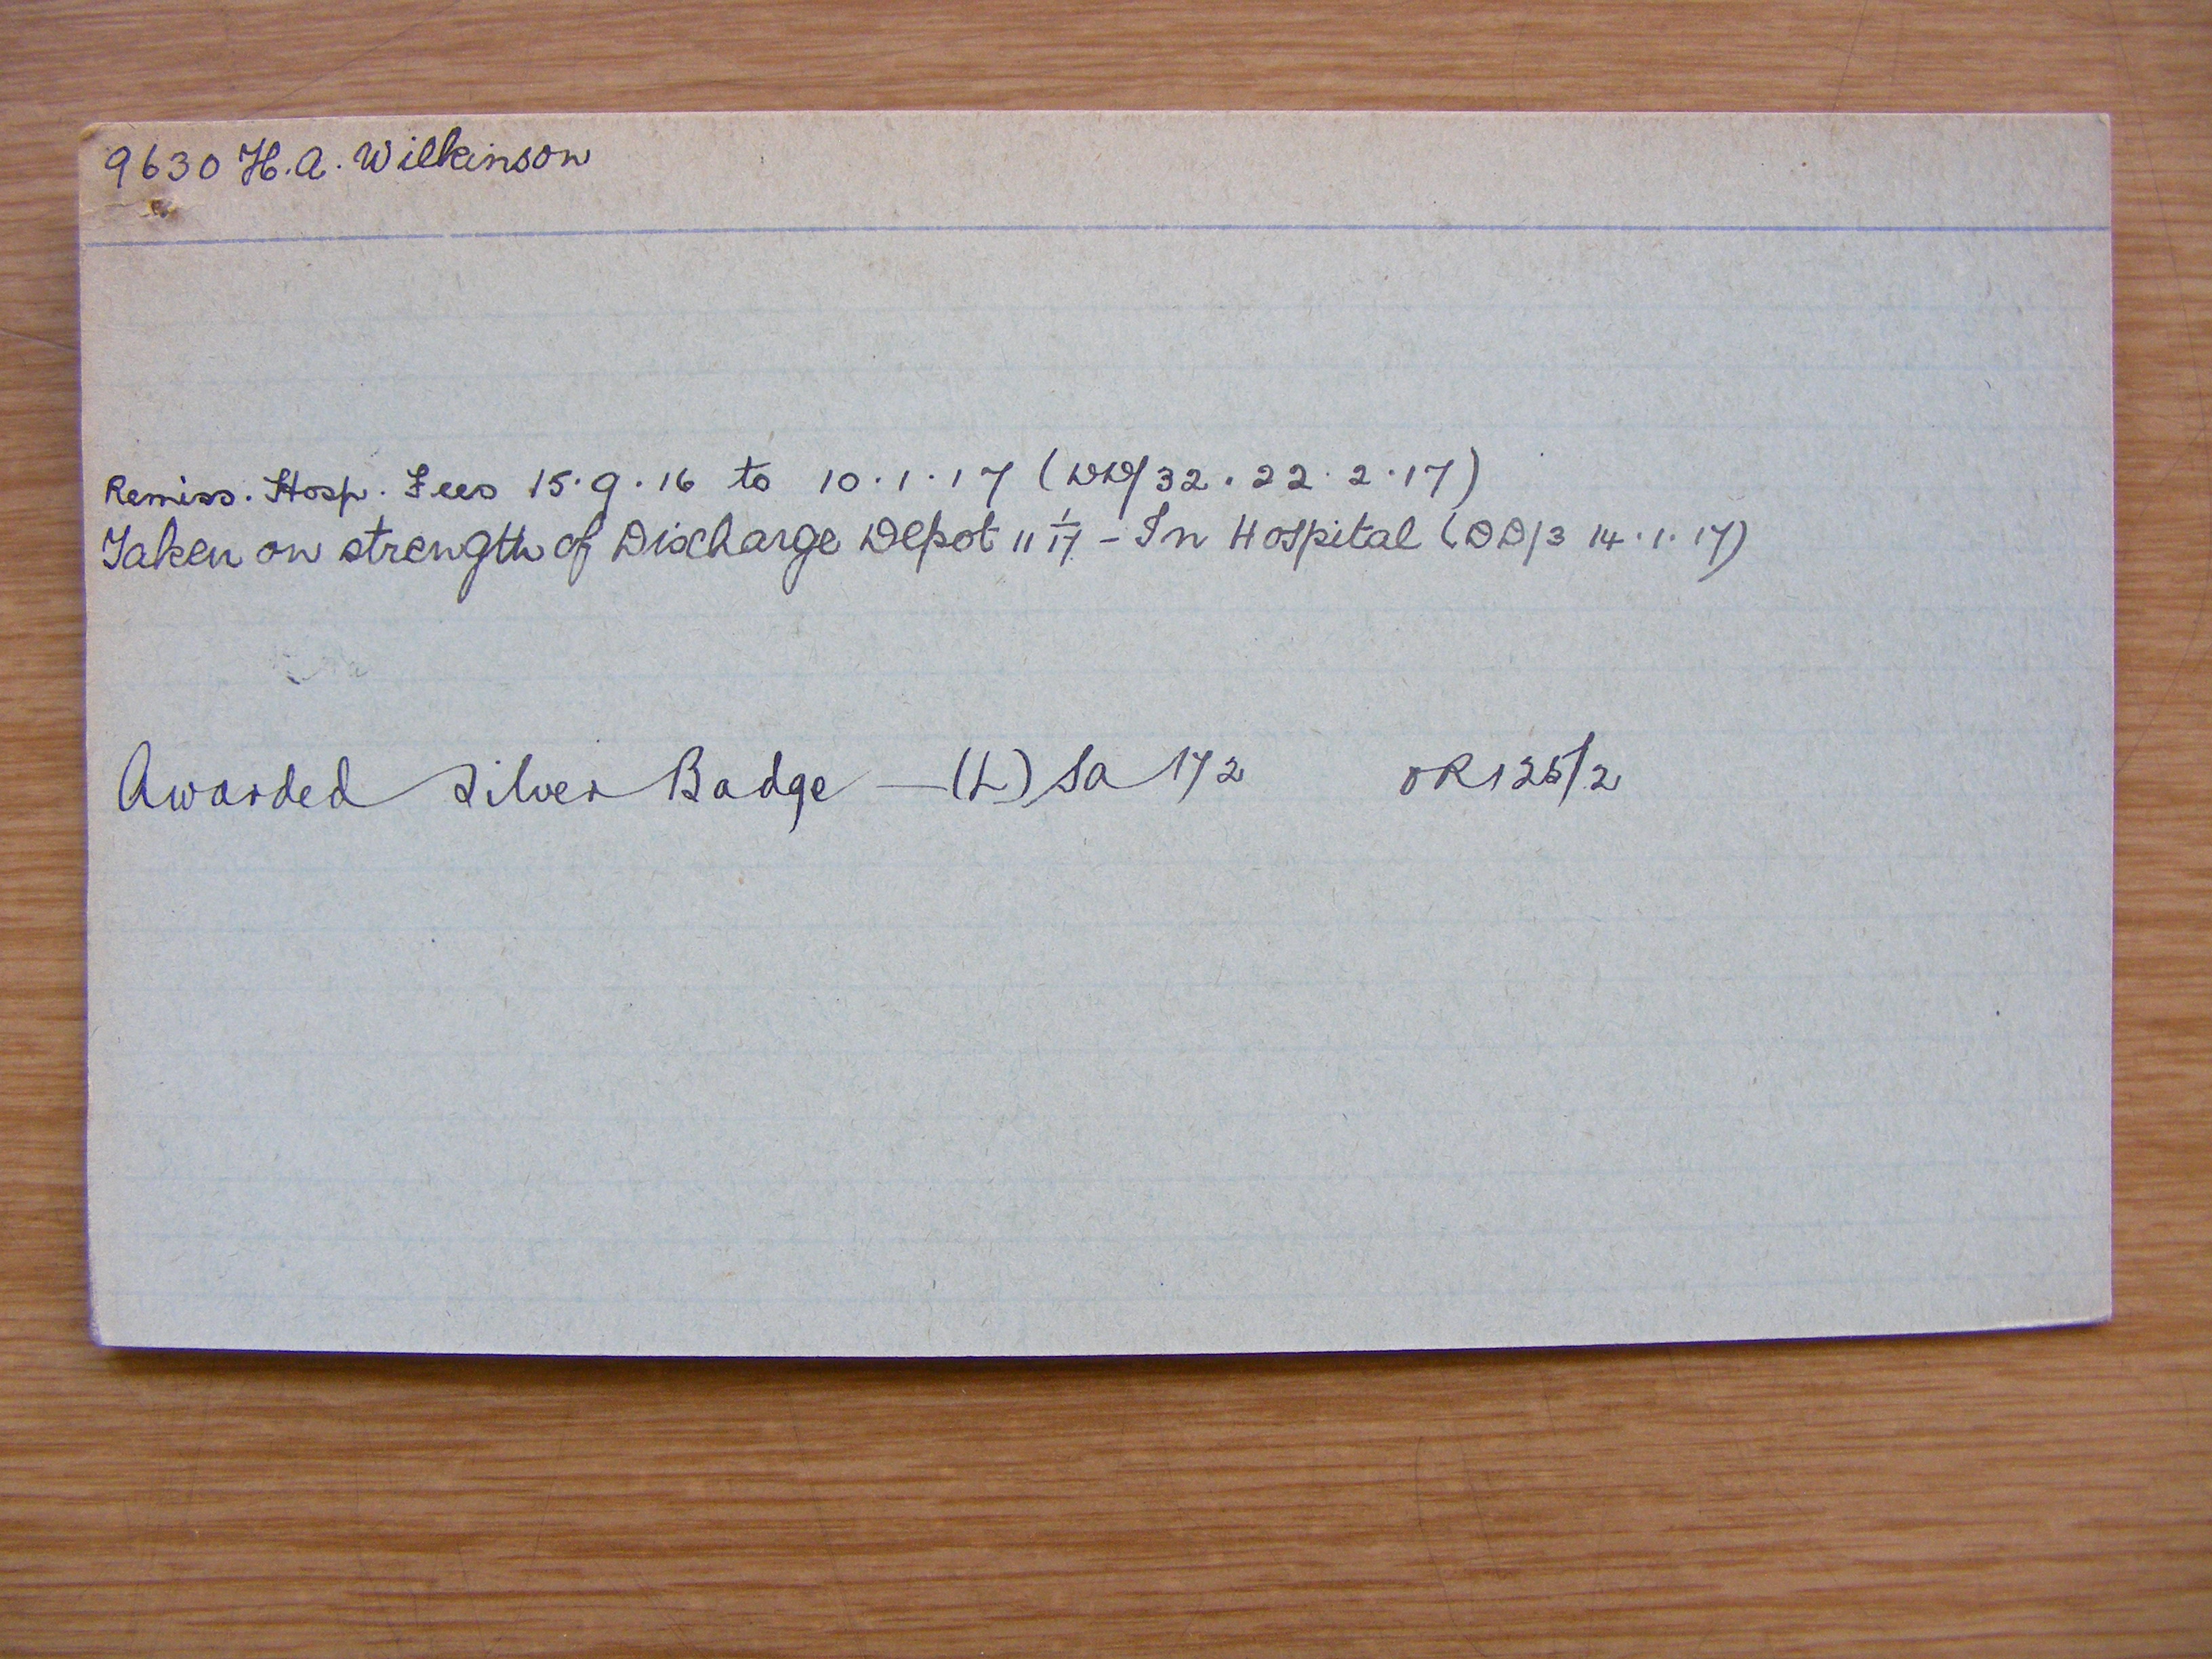 9630 H.A. Wilkinson
Remiss. Hosp. Fees 15.9.16 to 10.1.17 (DD/32. 22.2.17)
Taken on strength of Discharge Depot 11 1/17 - In Hospital (DD/3 14.1.17)
Awarded Silver Badge — (L) Sa 172 OR125/2